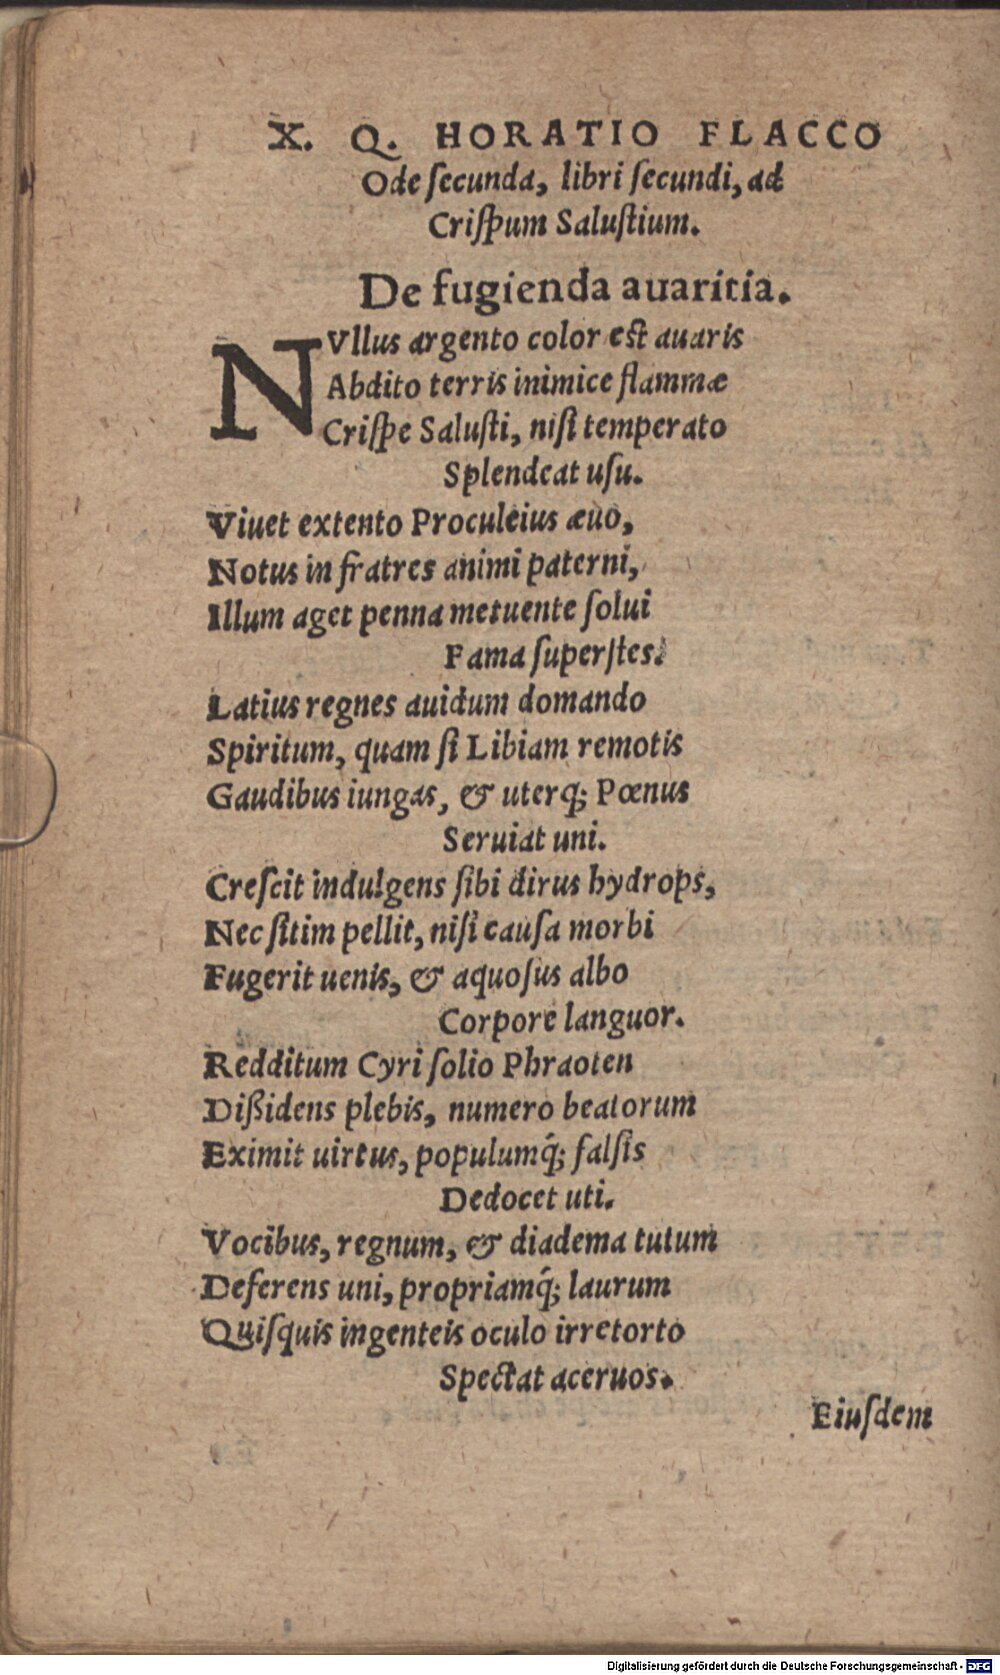 X. Q. HORATIO FLACCO
Ode ſecunda, libri ſecundi, ad
Criſpum Saluſtium.
De fugienda avaritia.
NVllus argento color est auaris
Abdito terris inimice flammæ
Criſpe Saluſti, niſi temperato
Splendeat uſu.
Viuet extento Proculeius æuo,
Notus in fratres animi paterni,
Illum aget penna metuente ſolui
Fama ſuperſtes.
Latius regnes auidum domando
Spiritum, quam ſi Libiam remotis
Gaudibus iungas, & uterq; Pœnus
Seruiat uni.
Creſcit indulgens ſibi dirus hydrops,
Nec ſitim pellit, niſi cauſa morbi
Fugerit uenis, & aquoſus albo
Corpore languor.
Redditum Cyri ſolio Phraoten
Dißidens plebis, numero beatorum
Eximit uirtus, populumq́; falſis
Dedocet uti.
Vocibus, regnum, & diadema tutum
Deferens uni, propriamq́; laurum
Quiſquis ingenteis oculo irretorto
Spectat aceruos.
Eiuſdem
Digitalisierung gefördert durch die Deutsche Forschungsgemeinschaft - DFG